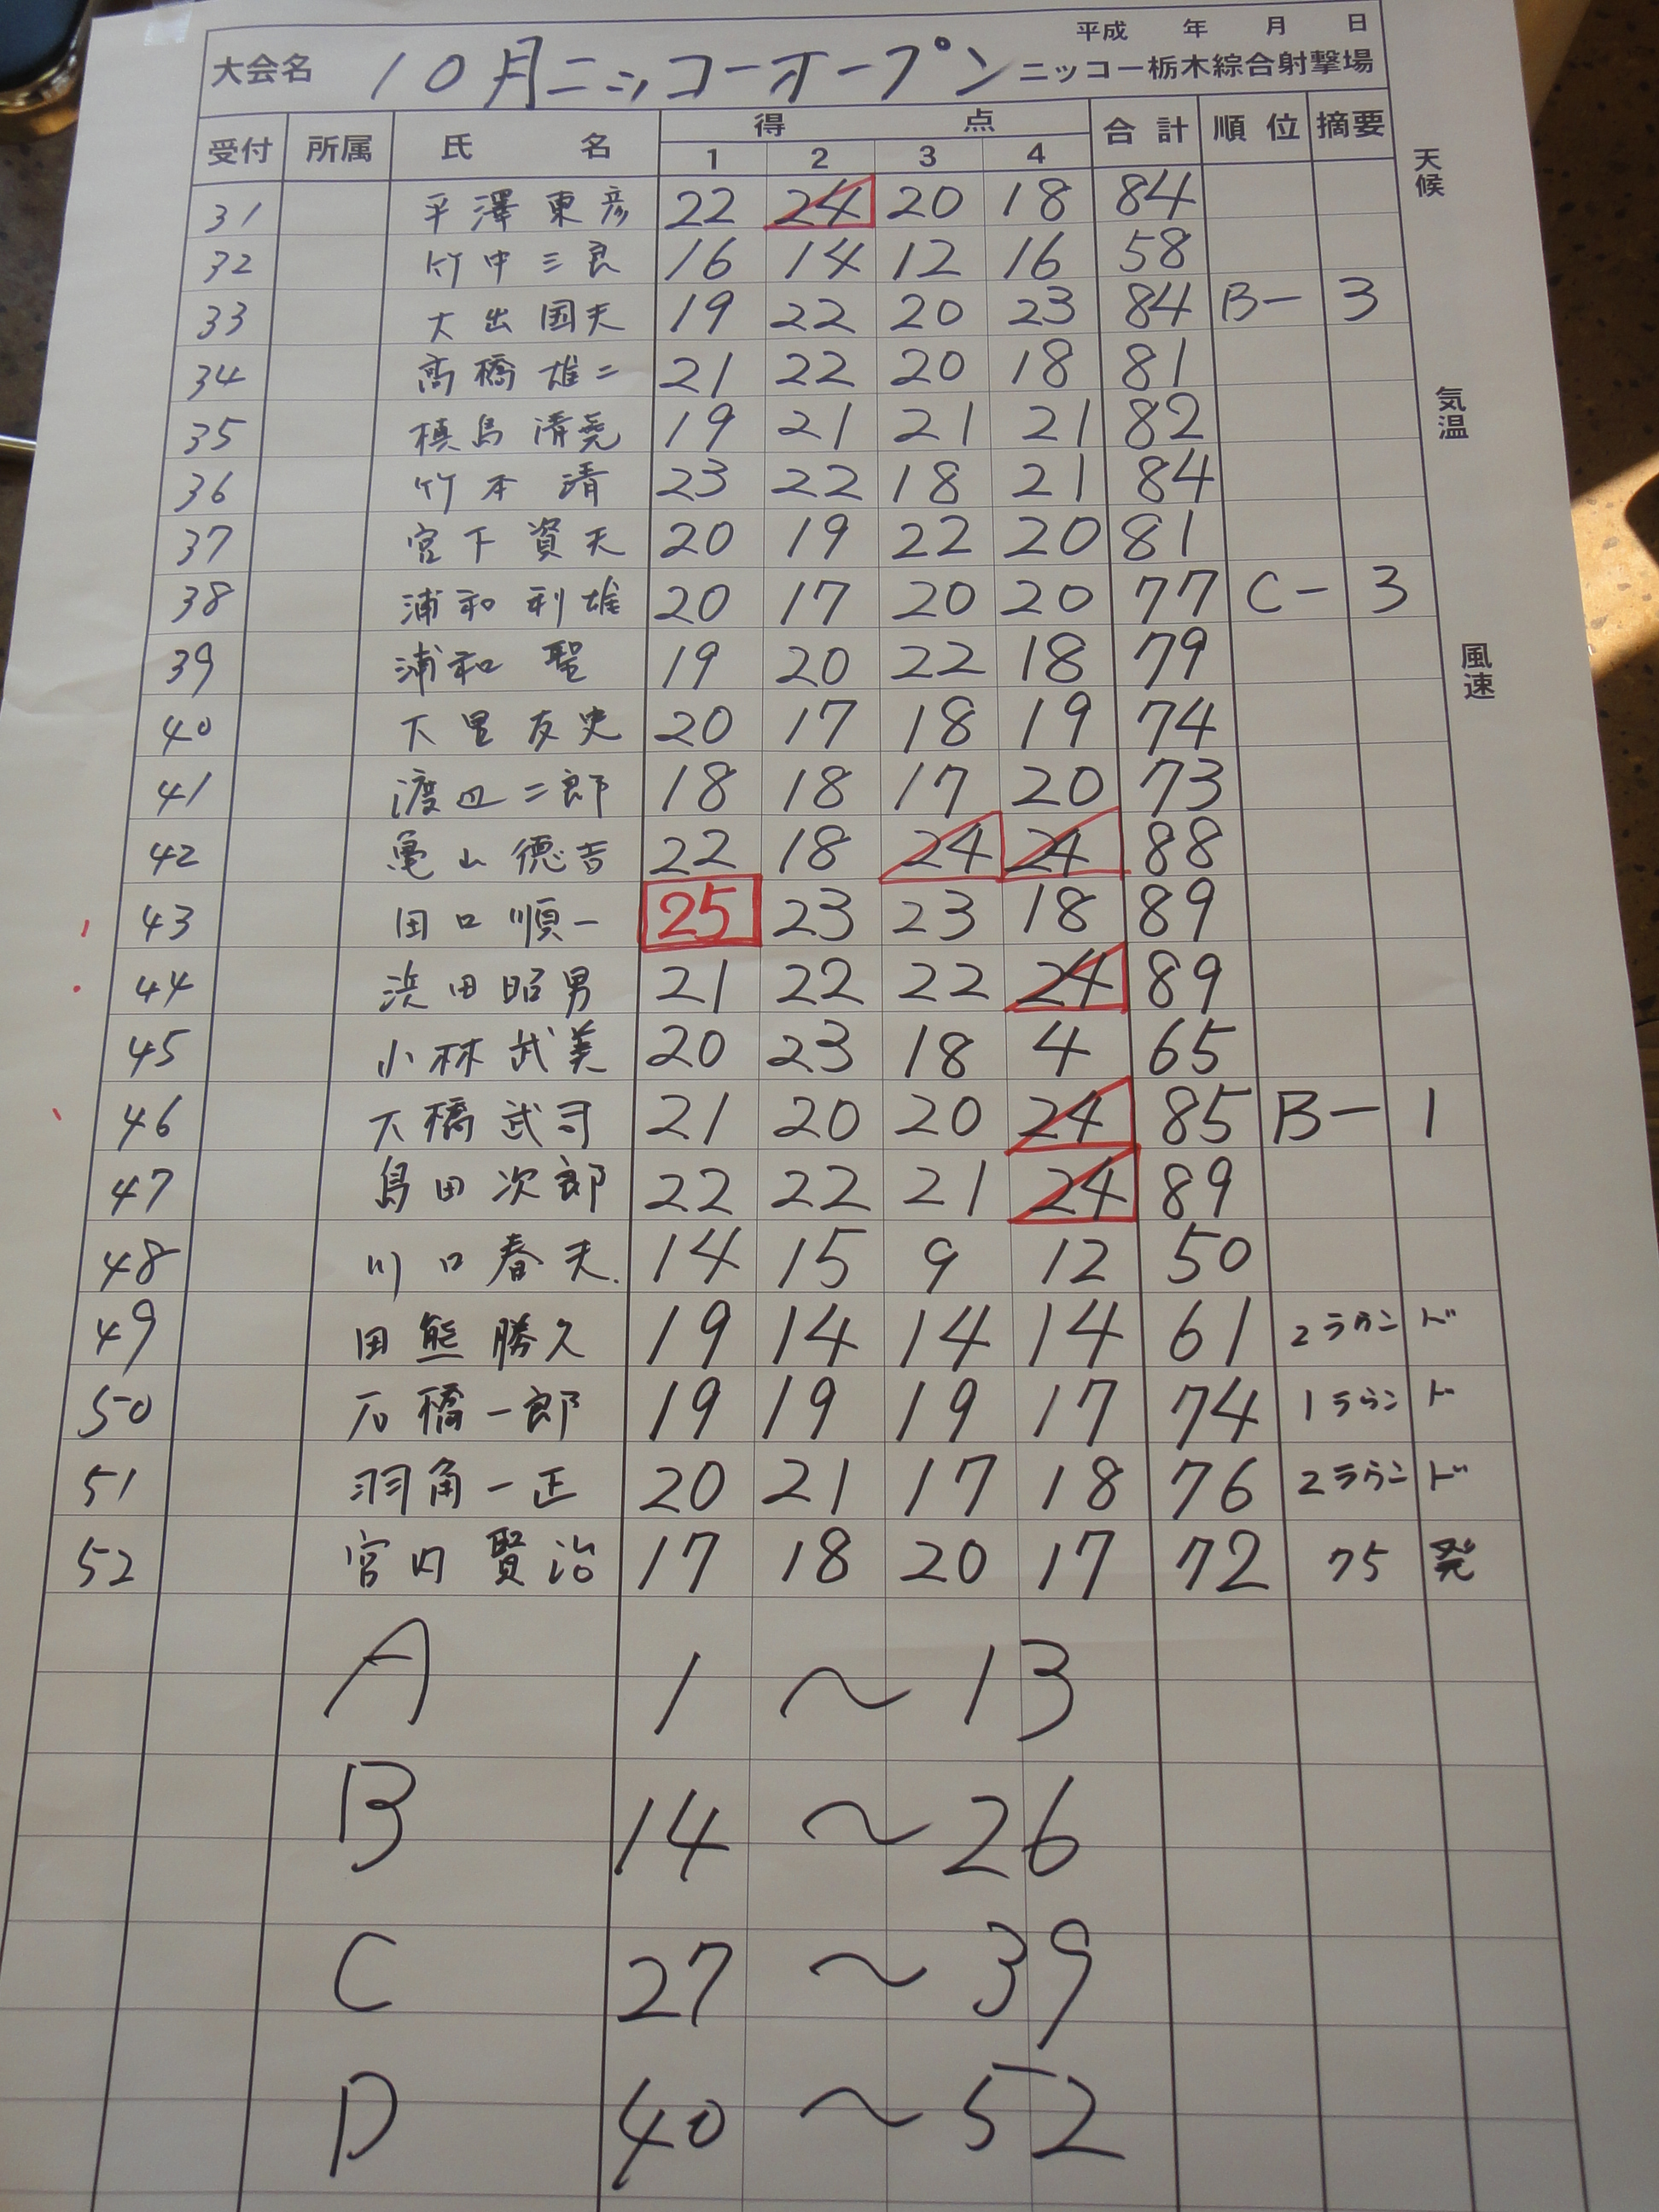 平成 年 月 日
大会名 10月ニッコーオープン ニッコー栃木綜合射撃場
受付 所属 氏名 得点 合計 順位 摘要
1 2 3 4
天候
気温
風速
31 平澤東彦 22 24 20 18 84
32 竹中三良 16 14 12 16 58
33 大出国夫 19 22 20 23 84 B- 3
34 高橋雄二 21 22 20 18 81
35 槙島清堯 19 21 21 21 82
36 竹本清 23 22 18 21 84
37 宮下資夫 20 19 22 20 81
38 浦和利雄 20 17 20 20 77 C- 3
39 浦和聖 19 20 22 18 79
40 下里友史 20 17 18 19 74
41 渡辺二郎 18 18 17 20 73
42 亀山徳吉 22 18 24 24 88
43 田口順一 25 23 23 18 89
44 浜田昭男 21 22 22 24 89
45 小林武美 20 23 18 4 65
46 大橋武司 21 20 20 24 85 B- 1
47 島田次郎 22 22 21 24 89
48 川口春夫 14 15 9 12 50
49 田熊勝久 19 14 14 14 61 2ラウンド
50 石橋一郎 19 19 19 17 74 1ラウンド
51 羽角一正 20 21 17 18 76 2ラウンド
52 宮内賢治 17 18 20 17 72 75発
A 1〜13
B 14〜26
C 27〜39
D 40〜52